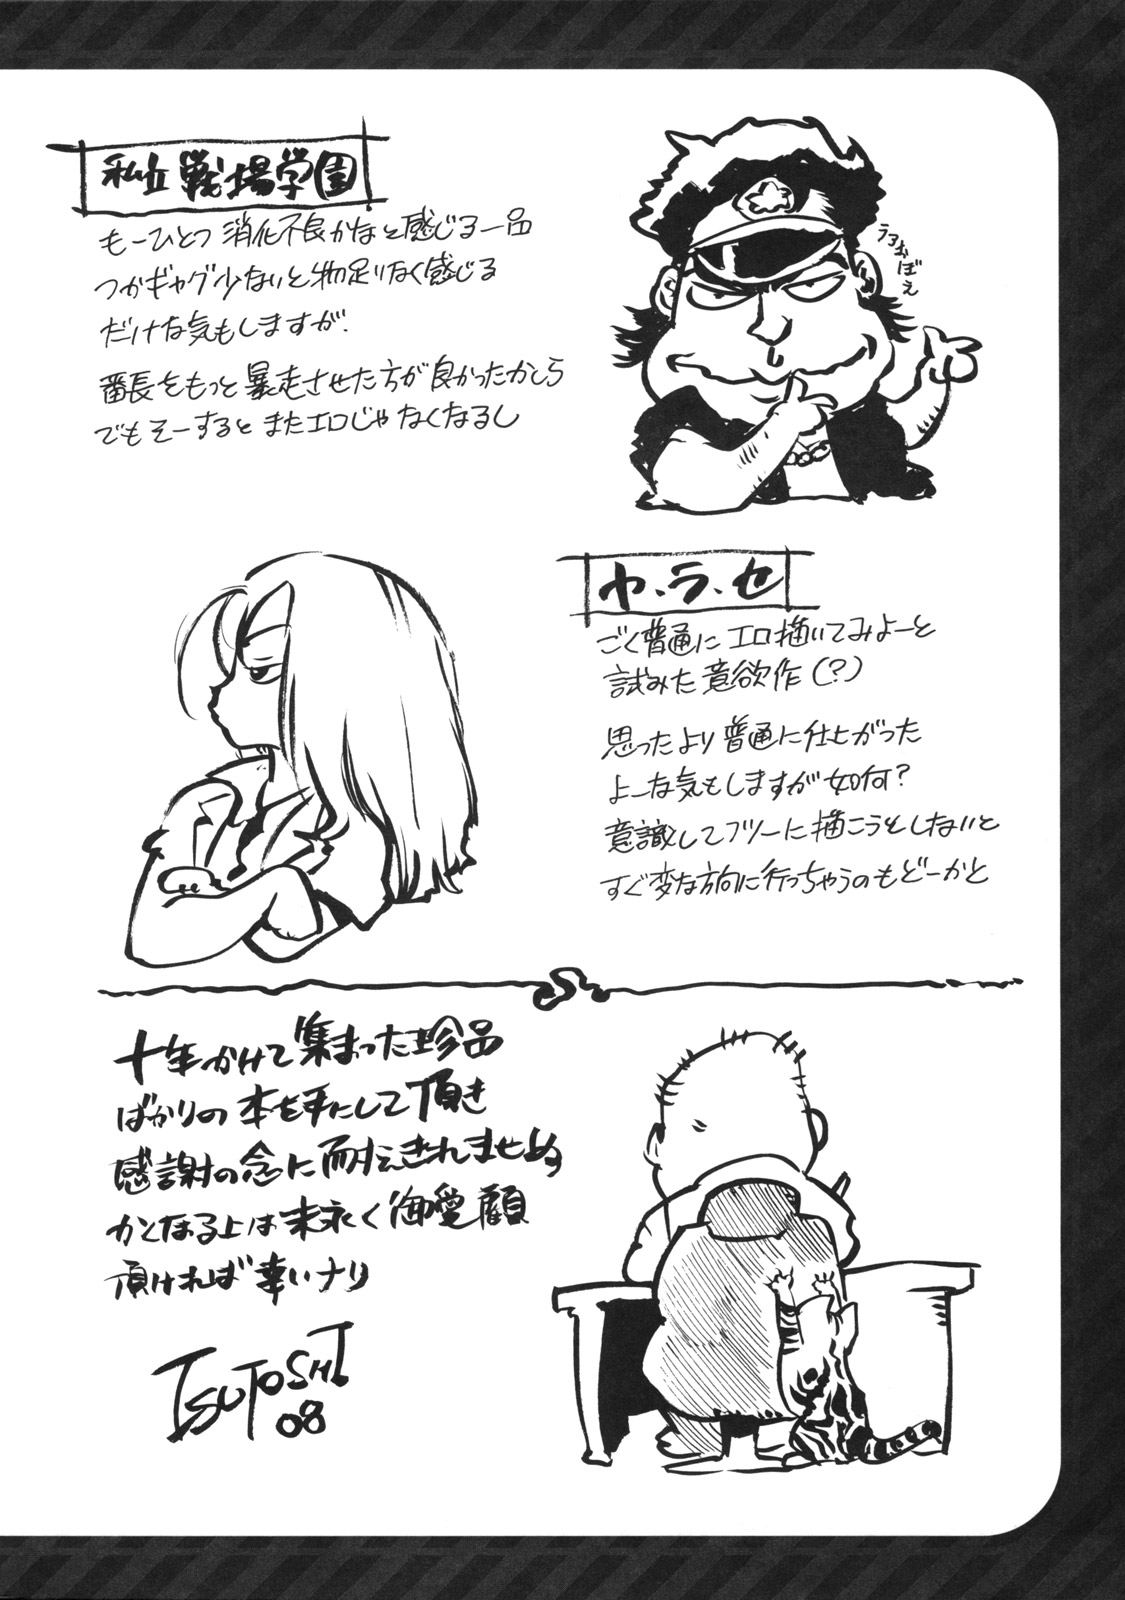 私立戦場学園
もーひとつ消化不良かなと感じる一品
つかギャグ少ないと物足りなく感じる
だけな気もしますが。
番長をもっと暴走させた方が良かったかしら
でもそーするとまたエロじゃなくなるし
ヤ・ラ・セ
ごく普通にエロ描いてみよーと
試みた意欲作(?)
思ったより普通に仕上がった
よーな気もしますが如何?
意識してフツーに描こうとしないと
すぐ変な方向に行っちゃうのもどーかと
十年かけて集まった珍品
ばかりの本を手にして頂き
感謝の念に耐えきれませぬ
かとなる上は末永く御愛顧
頂ければ幸いナリ
TSUTOSHI
08